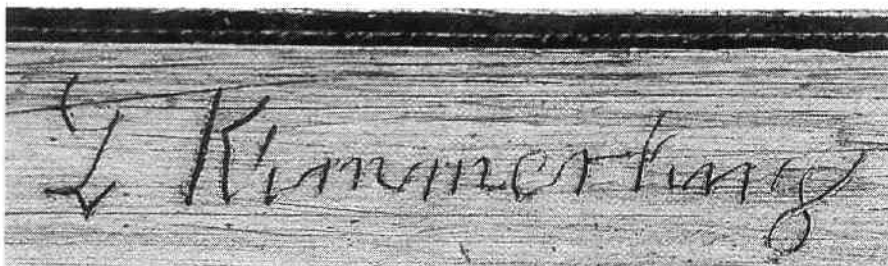 L Kimmerling